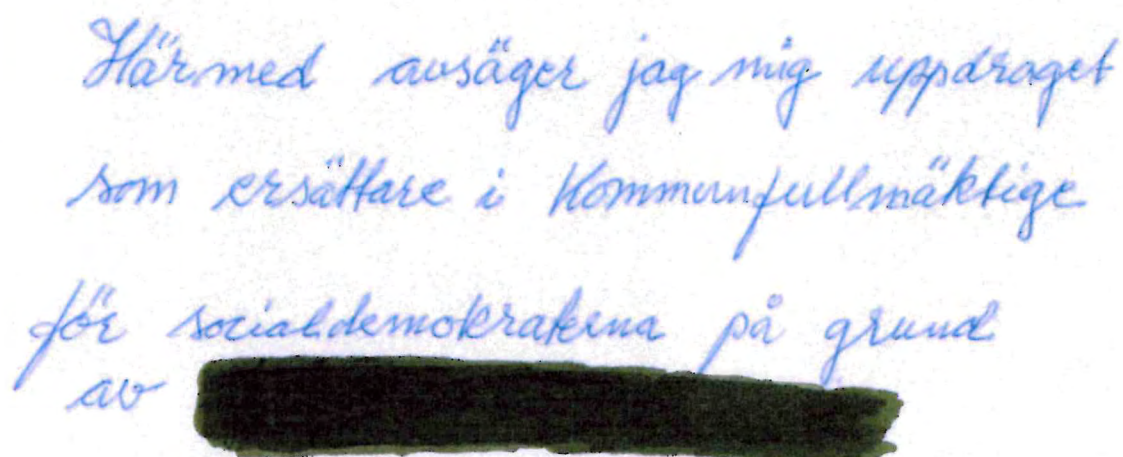 Härmed avsäger jag mig uppdraget
som ersättare i Kommunfullmäktige
för socialdemokraterna på grund
av